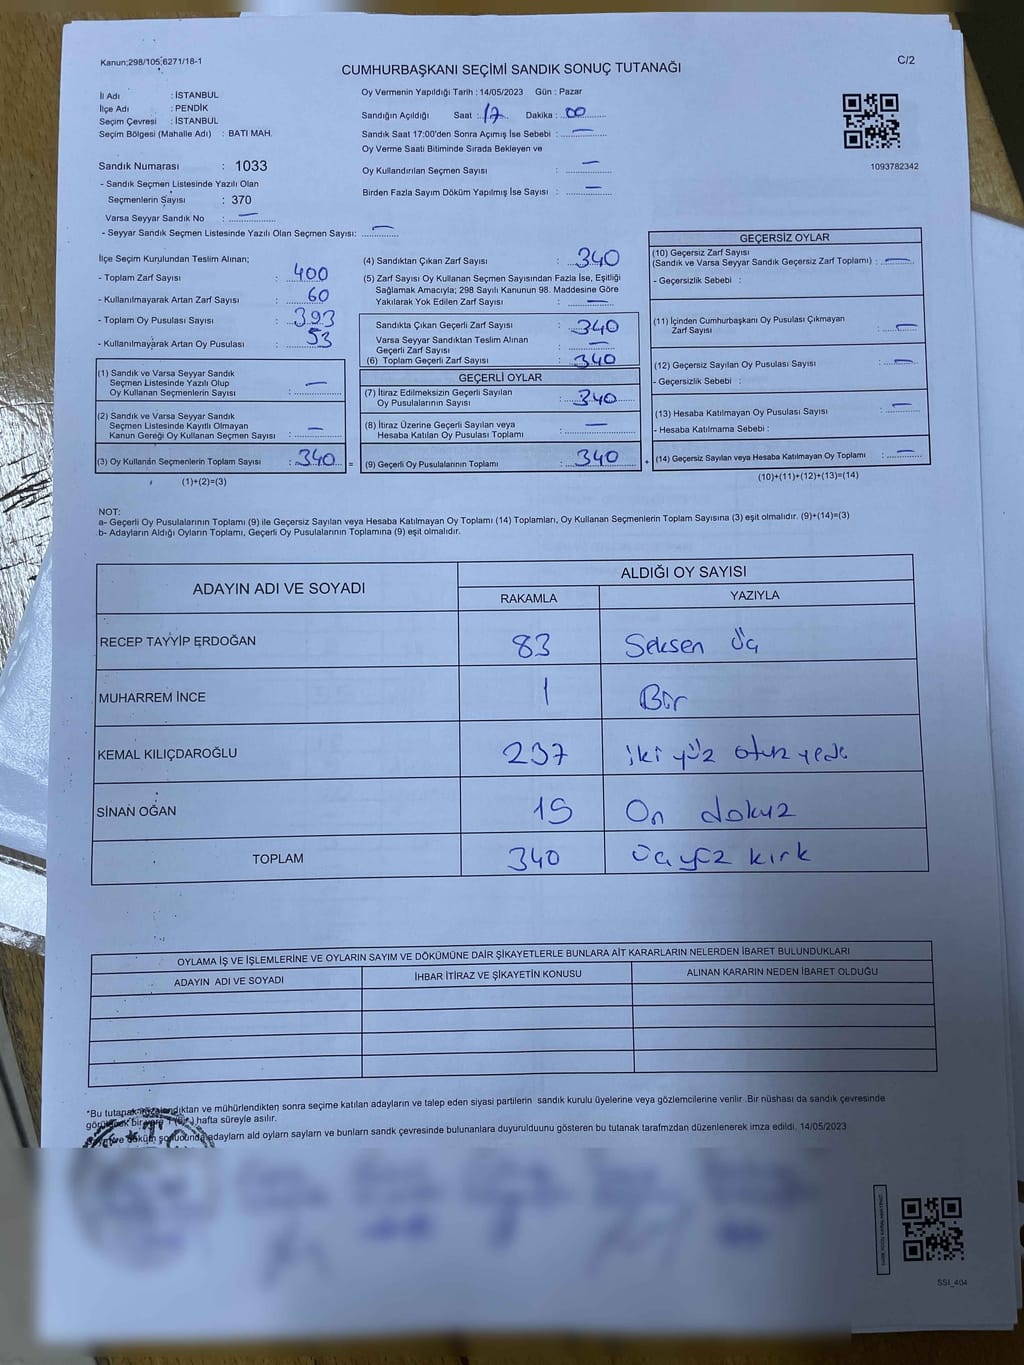 Kanun;298/105,6271/18-1
C/2
CUMHURBAŞKANI SEÇİMİ SANDIK SONUÇ TUTANAĞI
İl Adı : İSTANBUL
İlçe Adı : PENDİK
Seçim Çevresi : İSTANBUL
Seçim Bölgesi (Mahalle Adı) : BATI MAH.
Sandık Numarası : 1033
- Sandık Seçmen Listesinde Yazılı Olan
Seçmenlerin Sayısı : 370
Varsa Seyyar Sandık No : —
- Seyyar Sandık Seçmen Listesinde Yazılı Olan Seçmen Sayısı: —
Oy Vermenin Yapıldığı Tarih : 14/05/2023 Gün : Pazar
Sandığın Açıldığı Saat : 17 Dakika : 00
Sandık Saat 17:00'den Sonra Açımış İse Sebebi : —
Oy Verme Saati Bitiminde Sırada Bekleyen ve
Oy Kullandırılan Seçmen Sayısı : —
Birden Fazla Sayım Döküm Yapılmış İse Sayısı : —
1093782342
İlçe Seçim Kurulundan Teslim Alınan;
- Toplam Zarf Sayısı : 400
- Kullanılmayarak Artan Zarf Sayısı : 60
- Toplam Oy Pusulası Sayısı : 393
- Kullanılmayarak Artan Oy Pusulası : 53
(1) Sandık ve Varsa Seyyar Sandık
Seçmen Listesinde Yazılı Olup
Oy Kullanan Seçmenlerin Sayısı : —
(2) Sandık ve Varsa Seyyar Sandık
Seçmen Listesinde Kayıtlı Olmayan
Kanun Gereği Oy Kullanan Seçmen Sayısı : —
(3) Oy Kullanan Seçmenlerin Toplam Sayısı : 340 =
(1)+(2)=(3)
(4) Sandıktan Çıkan Zarf Sayısı : 340
(5) Zarf Sayısı Oy Kullanan Seçmen Sayısından Fazla İse, Eşitliği
Sağlamak Amacıyla; 298 Sayılı Kanunun 98. Maddesine Göre
Yakılarak Yok Edilen Zarf Sayısı : —
Sandıkta Çıkan Geçerli Zarf Sayısı : 340
Varsa Seyyar Sandıktan Teslim Alınan
Geçerli Zarf Sayısı : —
(6) Toplam Geçerli Zarf Sayısı : 340
GEÇERLİ OYLAR
(7) İtiraz Edilmeksizin Geçerli Sayılan
Oy Pusulalarının Sayısı : 340
(8) İtiraz Üzerine Geçerli Sayılan veya
Hesaba Katılan Oy Pusulası Toplamı : —
(9) Geçerli Oy Pusulalarının Toplamı : 340 +
GEÇERSİZ OYLAR
(10) Geçersiz Zarf Sayısı
(Sandık ve Varsa Seyyar Sandık Geçersiz Zarf Toplamı) : —
- Geçersizlik Sebebi :
(11) İçinden Cumhurbaşkanı Oy Pusulası Çıkmayan
Zarf Sayısı : —
(12) Geçersiz Sayılan Oy Pusulası Sayısı : —
- Geçersizlik Sebebi :
(13) Hesaba Katılmayan Oy Pusulası Sayısı : —
- Hesaba Katılmama Sebebi :
(14) Geçersiz Sayılan veya Hesaba Katılmayan Oy Toplamı : —
(10)+(11)+(12)+(13)=(14)
NOT:
a- Geçerli Oy Pusulalarının Toplamı (9) ile Geçersiz Sayılan veya Hesaba Katılmayan Oy Toplamı (14) Toplamları, Oy Kullanan Seçmenlerin Toplam Sayısına (3) eşit olmalıdır. (9)+(14)=(3)
b- Adayların Aldığı Oyların Toplamı, Geçerli Oy Pusulalarının Toplamına (9) eşit olmalıdır.
ADAYIN ADI VE SOYADI ALDIĞI OY SAYISI
RAKAMLA YAZIYLA
RECEP TAYYİP ERDOĞAN 83 Seksen üç
MUHARREM İNCE 1 Bir
KEMAL KILIÇDAROĞLU 237 iki yüz otuz yedi
SİNAN OĞAN 19 On dokuz
TOPLAM 340 üçyüz kırk
OYLAMA İŞ VE İŞLEMLERİNE VE OYLARIN SAYIM VE DÖKÜMÜNE DAİR ŞİKAYETLERLE BUNLARA AİT KARARLARIN NELERDEN İBARET BULUNDUKLARI
ADAYIN ADI VE SOYADI İHBAR İTİRAZ VE ŞİKAYETİN KONUSU ALINAN KARARIN NEDEN İBARET OLDUĞU
*Bu tutanak imzalandıktan ve mühürlendikten sonra seçime katılan adayların ve talep eden siyasi partilerin sandık kurulu üyelerine veya gözlemcilerine verilir .Bir nüshası da sandık çevresinde
görülecek bir yere 1 (bir) hafta süreyle asılır.
Sayım ve döküm sonucunda adayların ald oyların sayların ve bunların sandk çevresinde bulunanlara duyurulduunu gösteren bu tutanak tarafmzdan düzenlenerek imza edildi. 14/05/2023
SSI_404